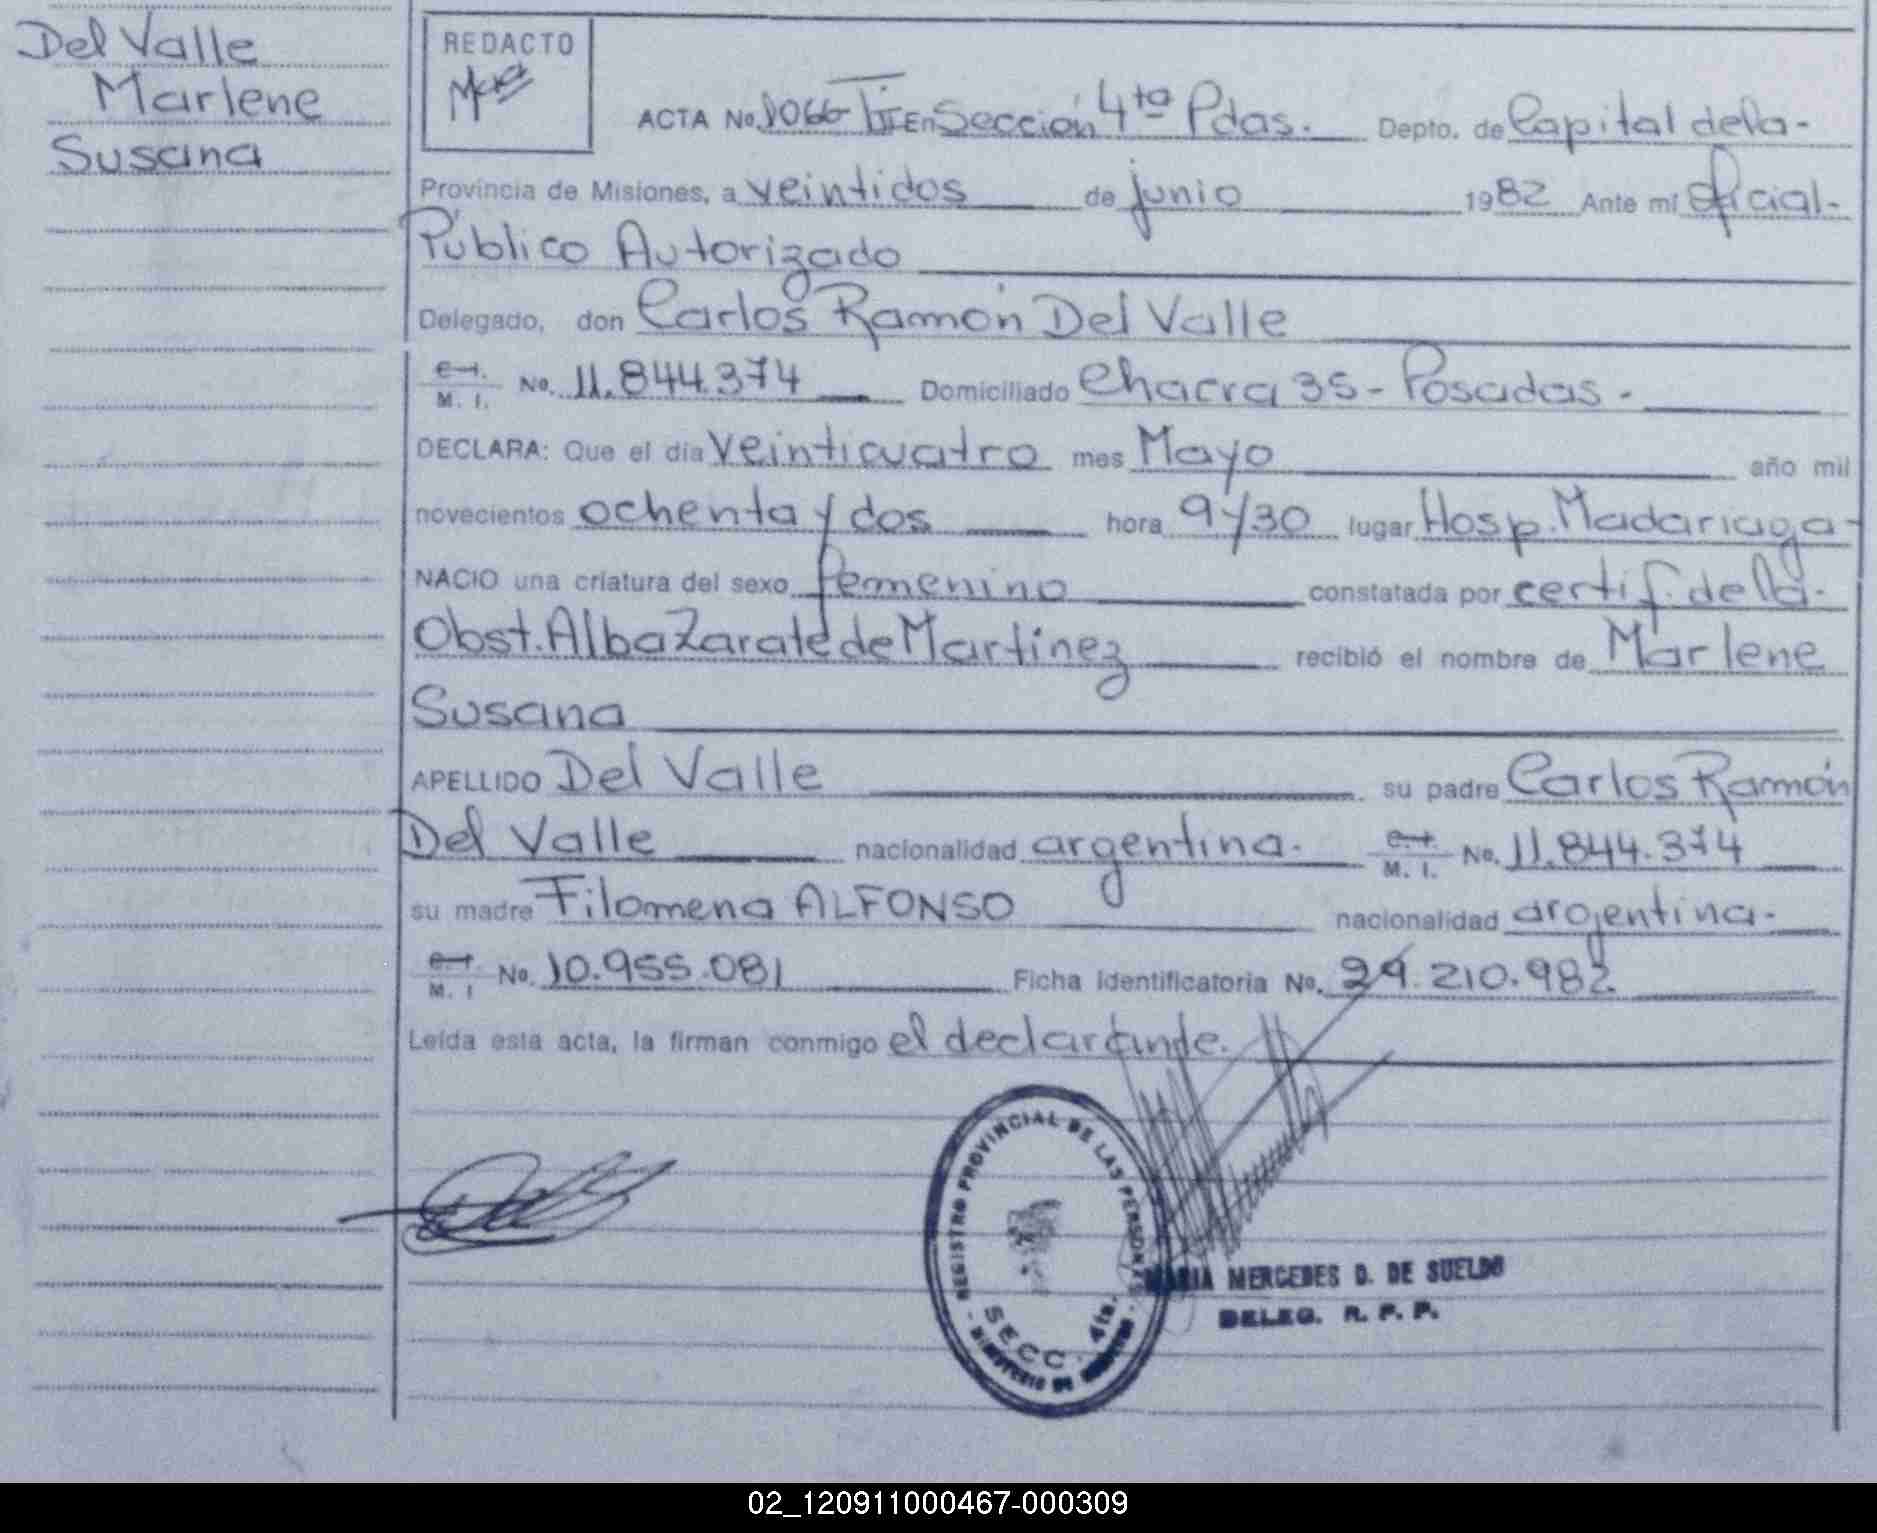 Del Valle
Marlene
Susana
REDACTO
ACTA No. 1066 TII En Sección 4ta Pdas. Depto. de Capital de la-
Provincia de Misiones, a veintidos de junio 1982 Ante mí oficial-
Público Autorizado
Delegado, don Carlos Ramón Del Valle
M. I. No. 11.844.374 Domiciliado Chacra 35 - Posadas.-
DECLARA: Que el día veinticuatro mes Mayo año mil
novecientos ochenta y dos hora 9y30 lugar Hosp. Madariaga-
NACIO una criatura del sexo femenino constatada por certif. de la-
Obst. Alba Zarate de Martinez recibió el nombre de Marlene
Susana
APELLIDO Del Valle su padre Carlos Ramón
Del Valle nacionalidad argentina. M. I. No. 11.844.374
su madre Filomena ALFONSO nacionalidad argentina.-
M. I No. 10.955.081 Ficha Identificatoria No. 29.210.982
Leída esta acta, la firman conmigo el declarante.
REGISTRO PROVINCIAL DE LAS PERSONAS
SECC. 4ta.
MARIA MERCEDES D. DE SUELDO
DELEG. R. P. P.
02_120911000467-000309